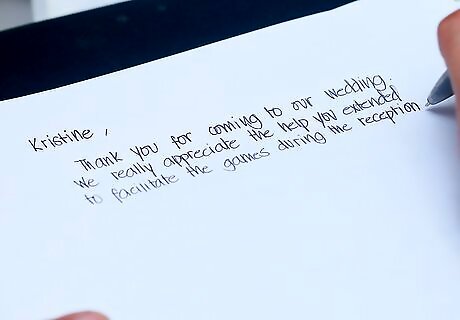 Kristine,
Thank you for coming to our wedding.
We really appreciate the help you extended
to facilitate the games during the reception